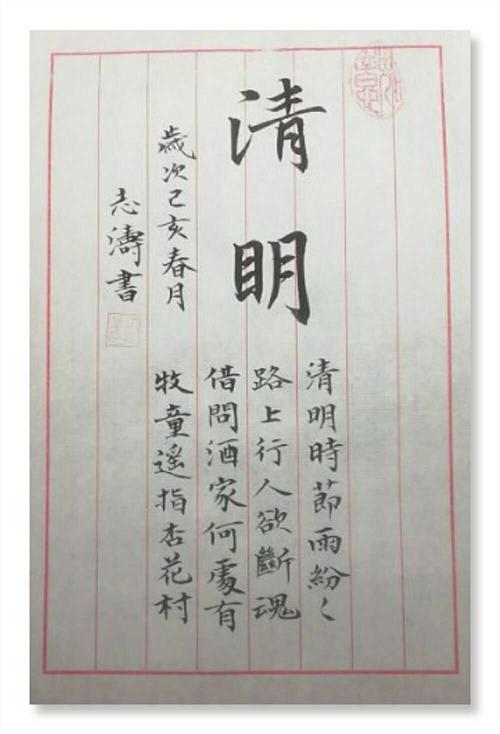 清明
清明時節雨紛〻
路上行人欲斷魂
借問酒家何處有
牧童遥指杏花村
歲次己亥春月
志濤書